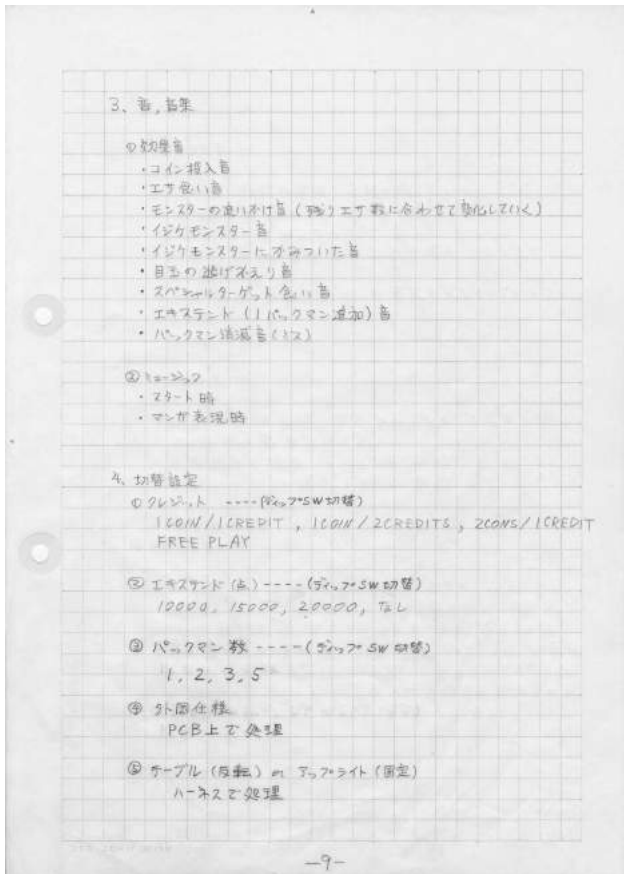 3、音,音楽
① 効果音
・コイン投入音
・エサ食い音
・モンスターの追いかけ音 (残りエサ数に合わせて変化していく)
・イジケモンスター音
・イジケモンスターにかみついた音
・目玉の逃げかえり音
・スペシャルターゲット食い音
・エキステンド (1パックマン追加) 音
・パックマン消滅音(ミス)
② ミュージック
・スタート時
・マンガ表現時
4、切替設定
① クレジット ----(ディップSW切替)
1COIN/1CREDIT , 1COIN/2CREDITS , 2CONS/1CREDIT
FREE PLAY
② エキステンド (点) ----(ディップSW切替)
10000, 15000, 20000, なし
③ パックマン数 ----(ディップSW切替)
1, 2, 3, 5
④ 外国仕様
PCB上で処理
⑤ テーブル (反転) or アップライト (固定)
ハーネスで処理
—9—